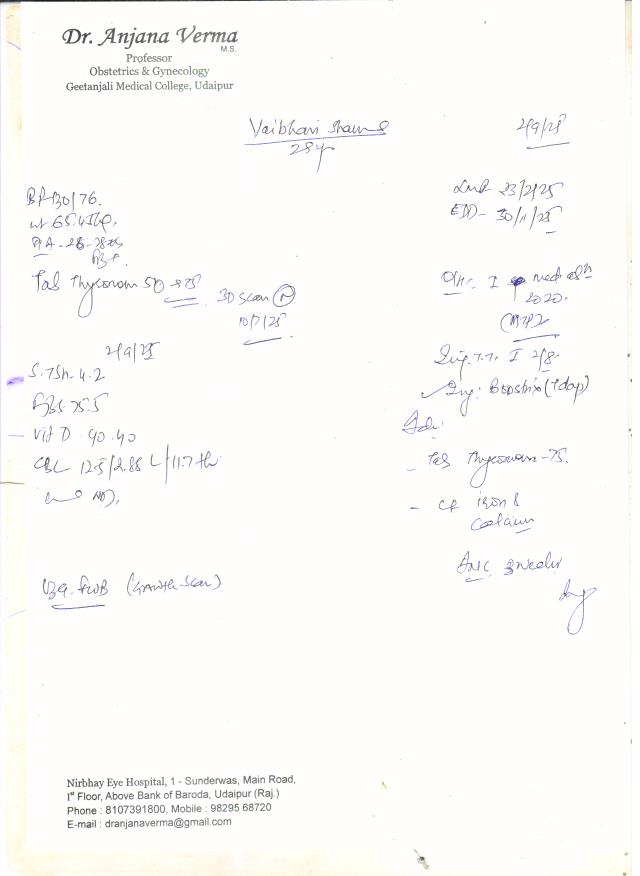 Dr. Anjana Verma
M.S.
Professor
Obstetrics & Gynecology
Geetanjali Medical College, Udaipur
Vaibhavi
28 yr
2/9/25
BP 130/76.
wt 65.4
LMP 23/2/25
EDD - 30/11/25
Tab Thyronorm 50
3D Scan N
10/7/25
O/H: I
2020.
2/9/25
S. TSH - 4.2
75.5
Vit D 40.40
CBC 12.5/
Inj. T.T. I 2/8
Inj: Boostrix (Tdap)
Adv:
- Tab Thyronorm - 75.
- Ct iron &
Calcium
ANC 3 weeks
USG. FWB (Growth Scan)
Nirbhay Eye Hospital, 1 - Sunderwas, Main Road,
1st Floor, Above Bank of Baroda, Udaipur (Raj.)
Phone : 8107391800, Mobile : 98295 68720
E-mail : dranjanaverma@gmail.com